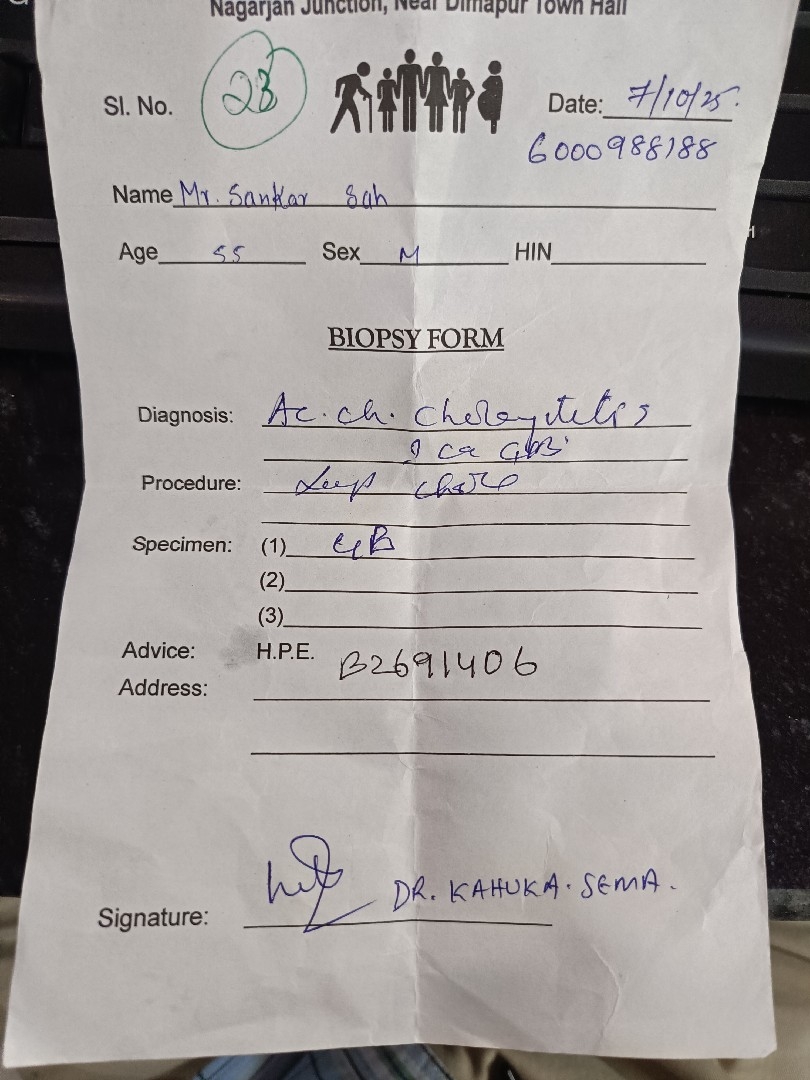 Nagarjan Junction, Near Dimapur Town Hall
Sl. No. 23 Date: 7/10/25.
6000988188
Name Mr. Sankar Sah
Age 55 Sex M HIN
BIOPSY FORM
Diagnosis: Ac. ch.
ca GB
Procedure: chole
Specimen: (1) GB
(2)
(3)
Advice: H.P.E. B2691406
Address:
Signature: DR. KAHUKA. SEMA.